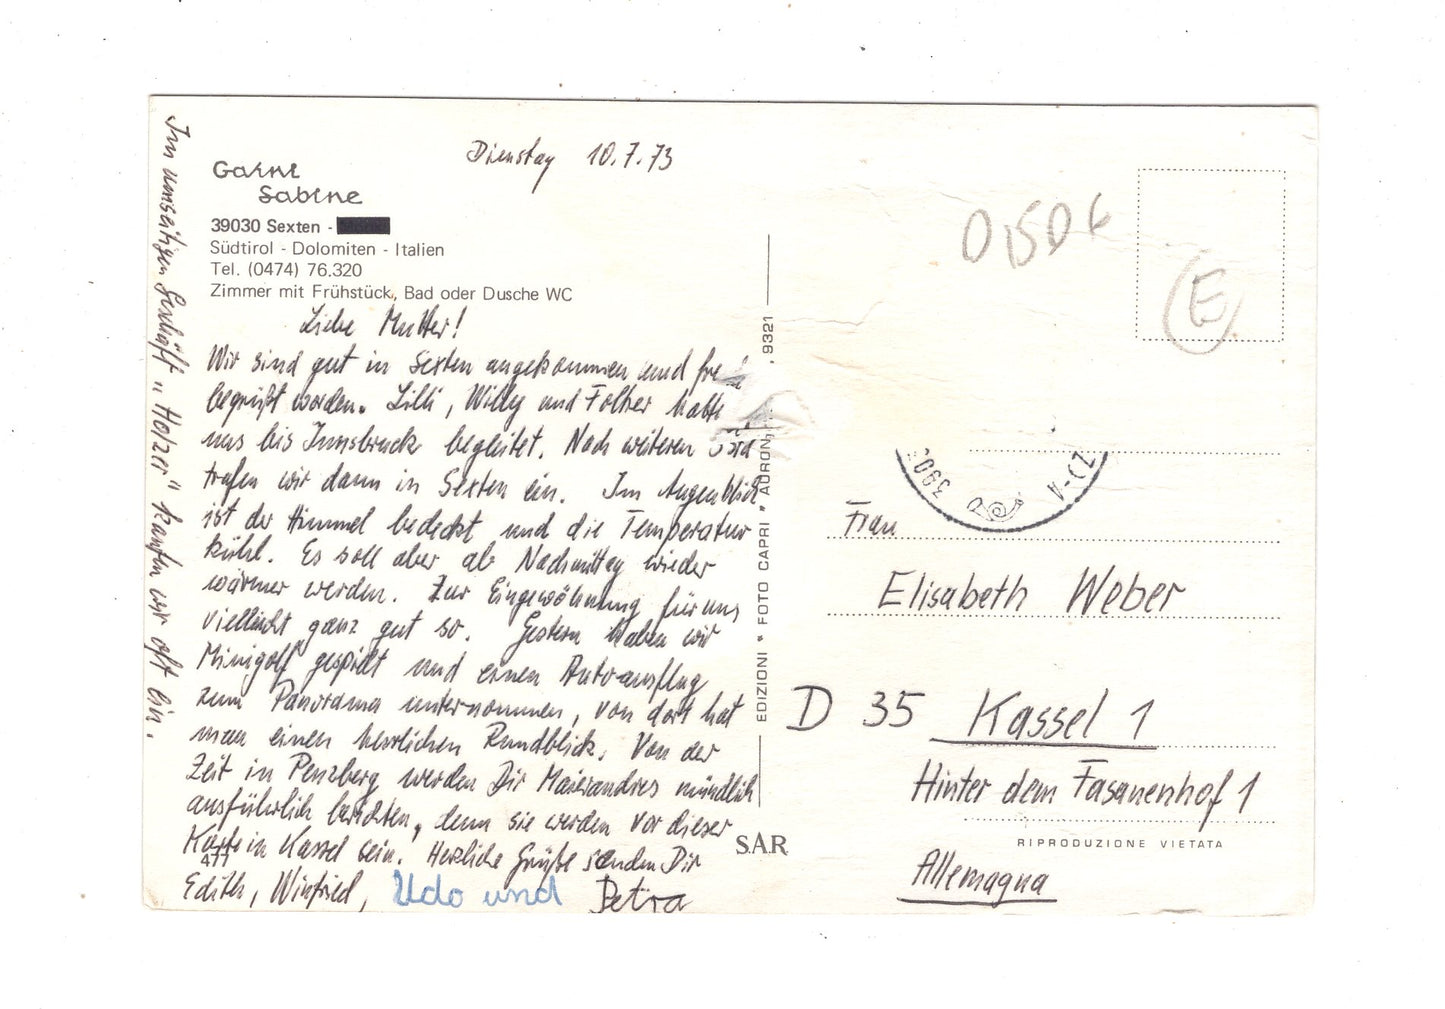 Dienstag 10.7.73
Garni
Sabine
39030 Sexten -
Südtirol - Dolomiten - Italien
Tel. (0474) 76.320
Zimmer mit Frühstück, Bad oder Dusche WC
Liebe Mutter!
Wir sind gut in Sexten angekommen und
begrüßt worden. Lilli, Willy und hatte
uns bis Innsbruck begleitet. Nach weiteren
trafen wir dann in Sexten ein. Im Augenblick
ist der Himmel bedeckt und die Temperatur
kühl. Es soll aber ab Nachmittag wieder
wärmer werden. Zur Eingewöhnung für uns
vielleicht ganz gut so. Gestern haben wir
Minigolf gespielt und einen Autoausflug
zum Panorama unternommen, von dort hat
man einen herrlichen Rundblick. Von der
Zeit in Penzberg werden Dir mündlich
ausführlich berichten, denn sie werden vor dieser
Karte in Kassel sein. Herzliche Grüße senden Dir
477
Edith, Winfried, Udo und Petra
Im umseitigen Geschäft "Holzer" kaufen wir oft ein.
EDIZIONI * FOTO CAPRI * AURON , 9321
SAR
E
3903
A-CZ
Frau
Elisabeth Weber
D 35 Kassel 1
Hinter dem Fasanenhof 1
RIPRODUZIONE VIETATA
Allemagna